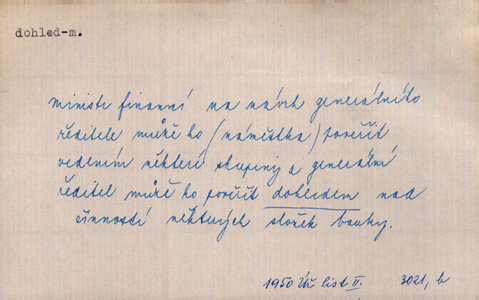 dohled-m.
ministr financí na návrh generálního
ředitele může ho (náměstka) pověřit
vedením některé skupiny a generální
ředitel může ho pověřit dohledem nad
činností některých složek banky.
1950 Úř list II. 3021, b